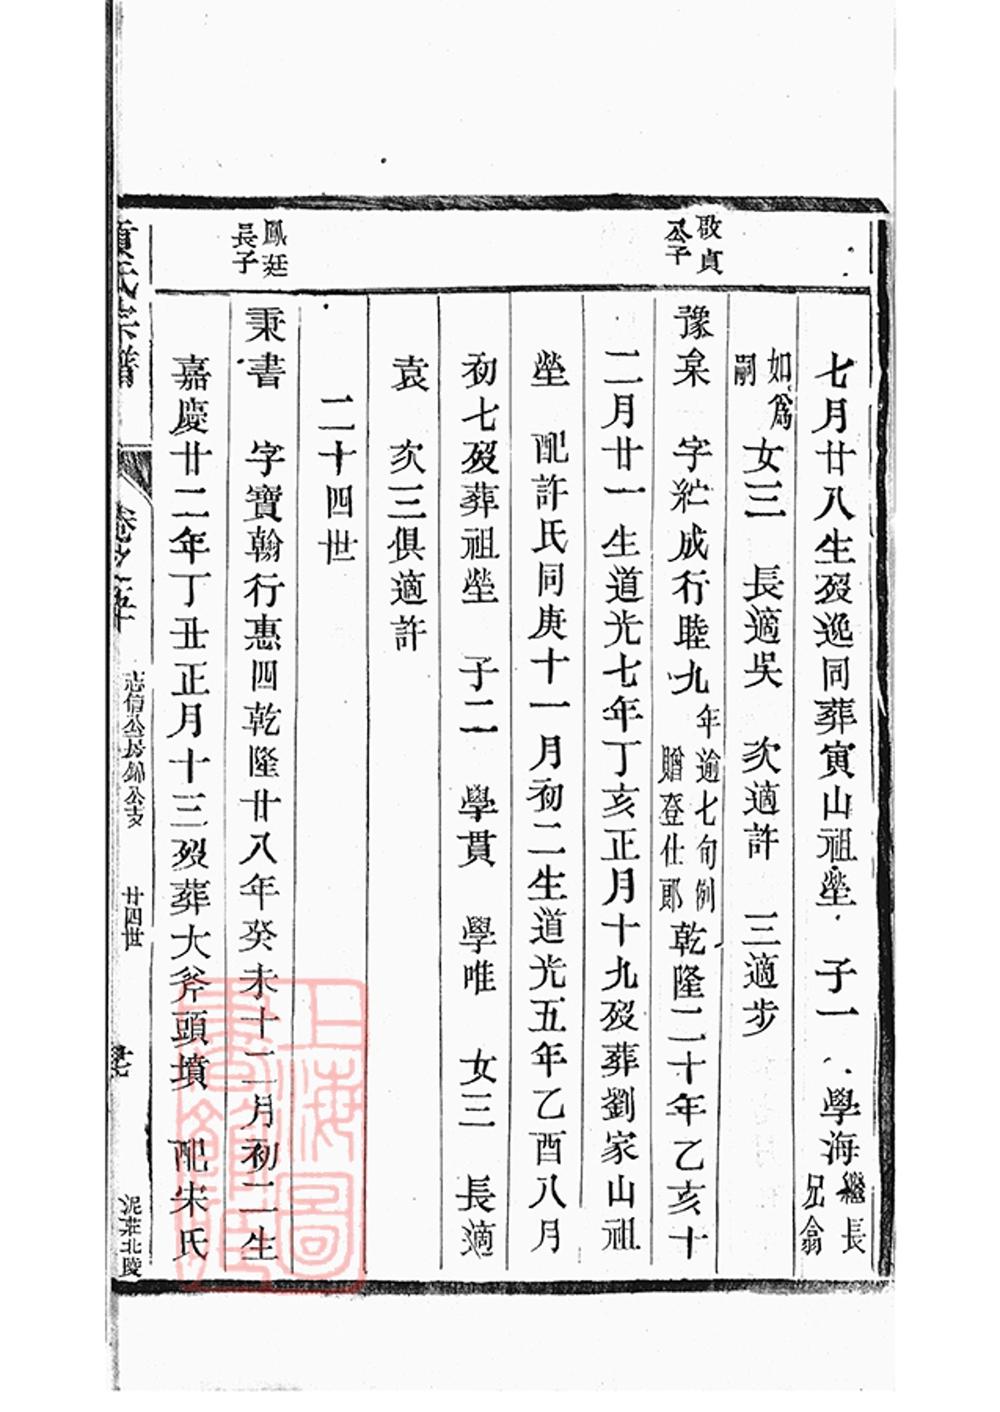 敬貞
公子
七月廿八生歿逸同葬寅山祖塋 子一 學海繼長兄翁
如為嗣 女三 長適吳 次適許 三適步
豫枲 字紝成行睦九年逾七旬例贈登仕郎乾隆二十年乙亥十
二月廿一生道光七年丁亥正月十九歿葬劉家山祖
塋 配許氏同庚十一月初二生道光五年乙酉八月
初七歿葬祖塋 子二 學貫 學唯 女三 長適
袁 次三俱適許
二十四世
鳳廷
長子
秉書 字寶翰行惠四乾隆廿八年癸未十二月初二生
嘉慶廿二年丁丑正月十三歿葬大斧頭墳 配宋氏
氏宗譜
卷之五
志信公房錦公支
廿四世
泥莊北陵
上海圖
書館藏